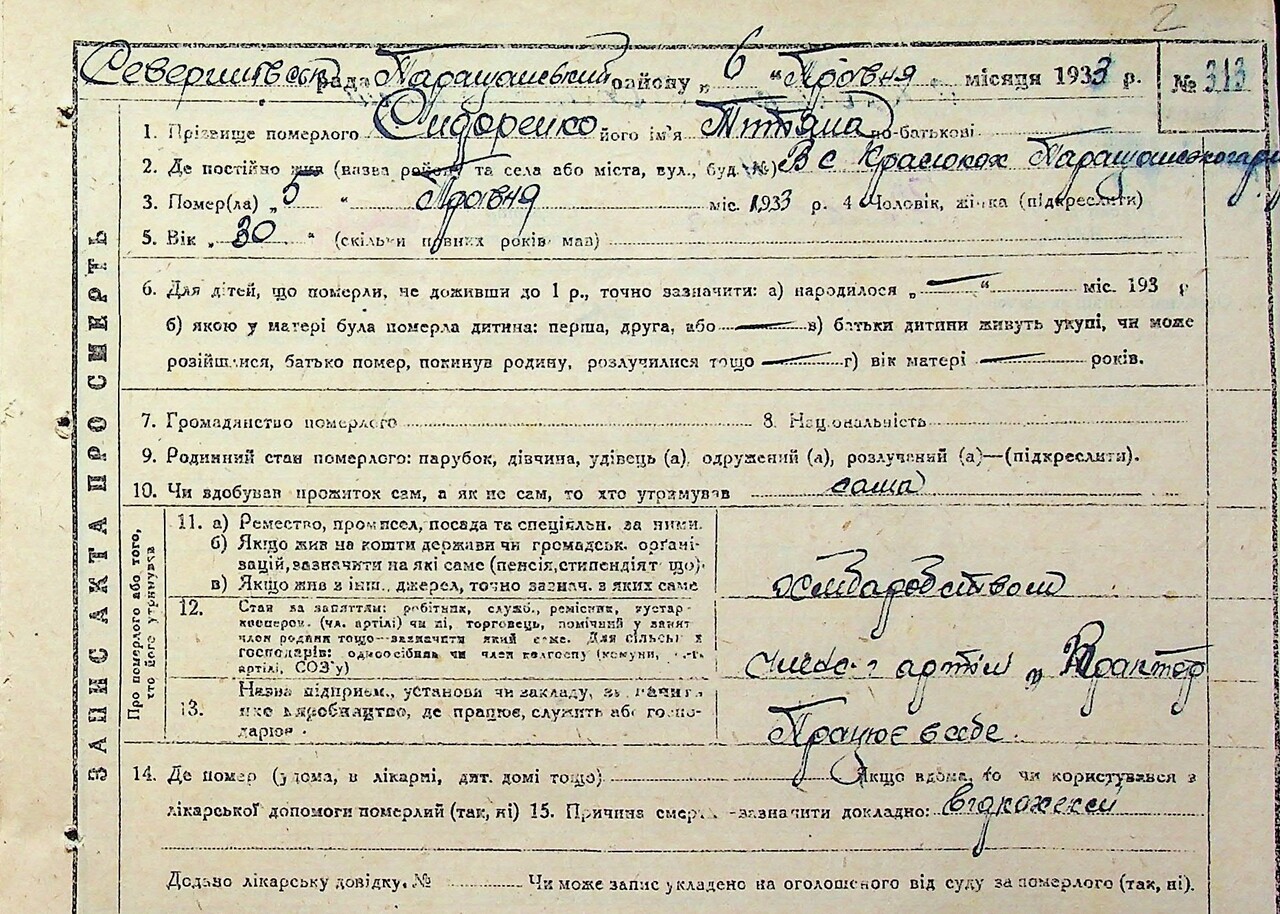 2
рада Паращанський району „ 6 “ Травня місяця 1933 р. № 313
1. Прізвище померлого Сидоренко його ім'я Тітяна по-батькові
2. Де постійно жив (назва району та села або міста, вул., буд. №) В с Краснокох
3. Помер(ла) „ 5 “ Травня міс. 1933 р. 4 Чоловік, жінка (підкреслити)
5. Вік „ 30 “ (скільки повних років мав)
6. Для дітей, що померли, не доживши до 1 р., точно зазначити: а) народилося „ — “ міс. 193 р
б) якою у матері була померла дитина: перша, друга, або — в) батьки дитини живуть укупі, чи може
розійшлися, батько помер, покинув родину, розлучилися тощо — г) вік матері — років.
7. Громадянство померлого 8. Національність
9. Родинний стан померлого: парубок, дівчина, удівець (а), одружений (а), розлучений (а)—(підкреслити).
10. Чи здобував прожиток сам, а як не сам, то хто утримував сама
ЗАПИС АКТА ПРО СМЕРТЬ
Про померлого або того, хто його утримував
11. а) Ремество, промисел, посада та спеціяльн. за ними.
б) Якщо жив на кошти держави чи громадськ. органі-
зацій, зазначити на які саме (пенсія, стипендіят що).
в) Якщо жив з інш. джерел, точно зазнач. з яких саме
Хліборобством
12. Стан за заняттям: робітник, служб., ремісник, кустар
кооперов. (чл. артілі) чи ні, торговець, помічний у занят
член родини тощо—зазначити який саме. Для сільськ х
господарів: одноосібник чи член колгоспу (комуни,
артілі, СОЗ'у)
артілі „ Трактор
13. Назва підприєм., установи чи закладу, зазначити
яке виробництво, де працює, служить або госпо-
дарює.
Працює в себе
14. Де помер (удома, в лікарні, дит. домі тощо) Якщо вдома, то чи користувався з
лікарської допомоги померлий (так, ні) 15. Причина смерти —зазначити докладно:
Додано лікарську довідку, № Чи може запис укладено на оголошеного від суду за померлого (так, ні).